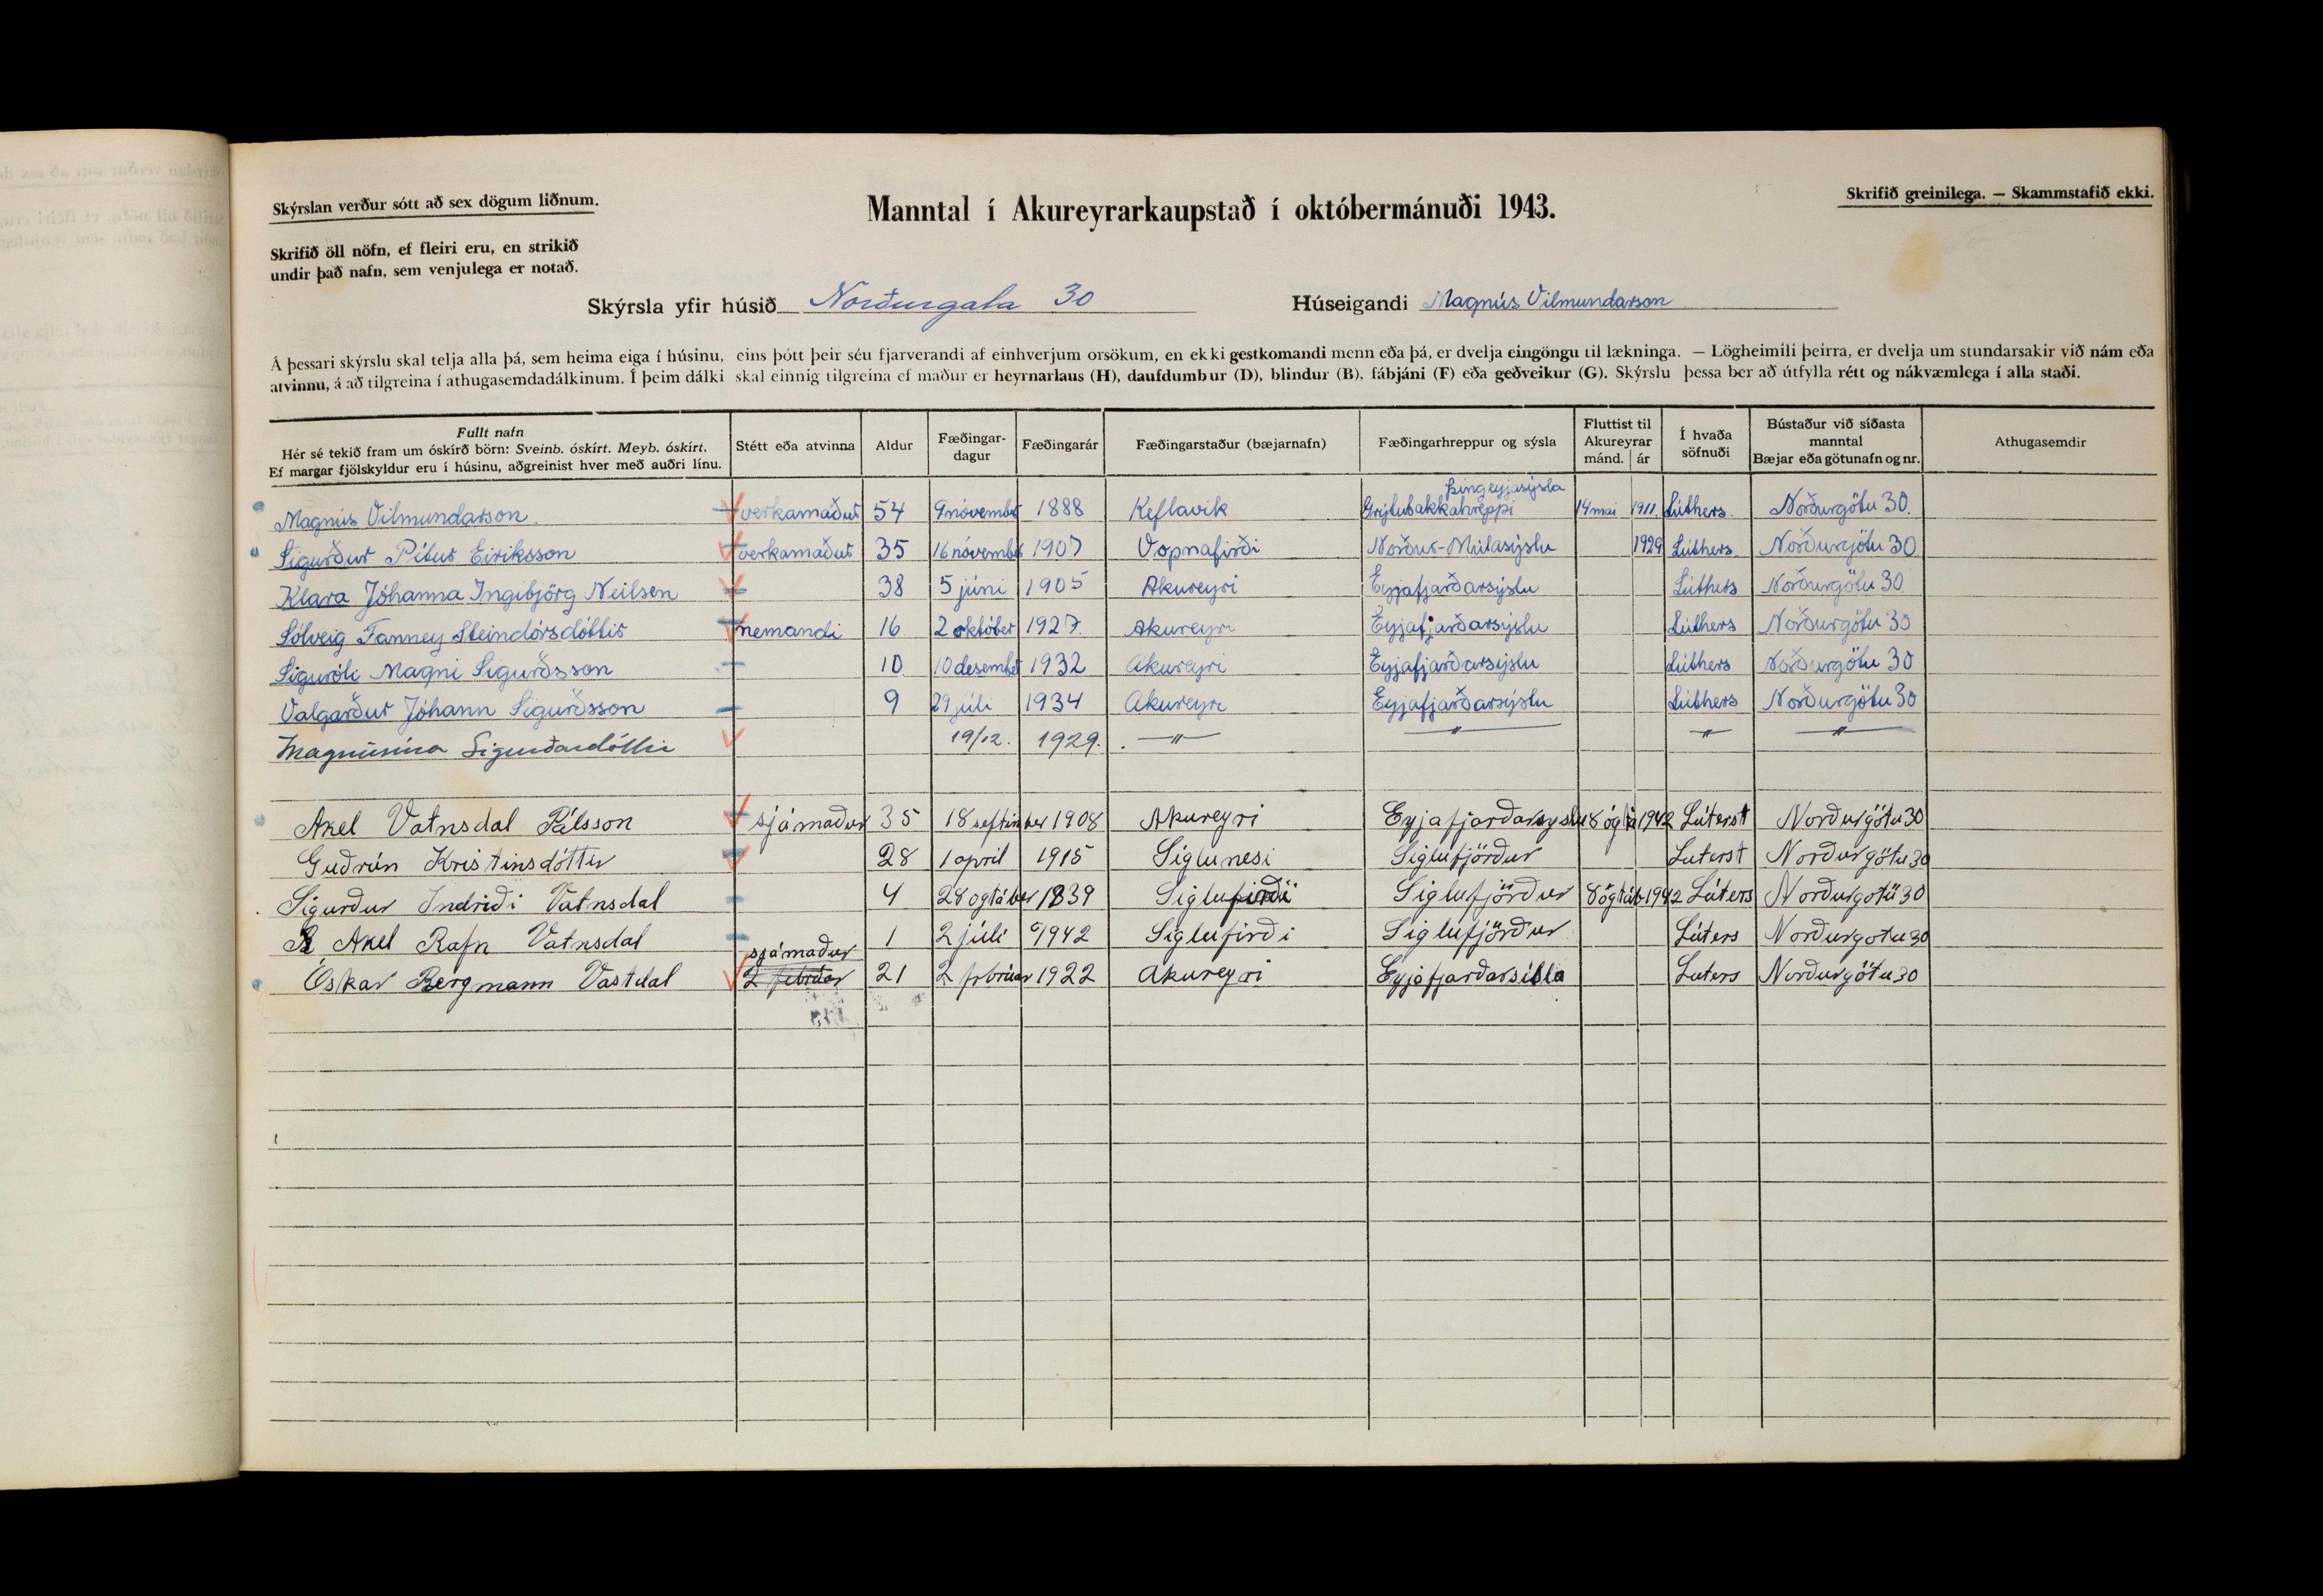 Skýrslan verður sótt að sex dögum liðnum.
Manntal í Akureyrarkaupstað í októbermánuði 1943.
Skrifið greinilega. — Skammstafið ekki.
Skrifið öll nöfn, ef fleiri eru, en strikið
undir það nafn, sem venjulega er notað.
Skýrsla yfir húsið Norðurgata 30 Húseigandi Magnús Vilmundarson
Á þessari skýrslu skal telja alla þá, sem heima eiga í húsinu, eins þótt þeir séu fjarverandi af einhverjum orsökum, en ekki gestkomandi menn eða þá, er dvelja eingöngu til lækninga. — Lögheimili þeirra, er dvelja um stundarsakir við nám eða
atvinnu, á að tilgreina í athugasemdadálkinum. Í þeim dálki skal einnig tilgreina ef maður er heyrnarlaus (H), daufdumbur (D), blindur (B), fábjáni (F) eða geðveikur (G). Skýrslu þessa ber að útfylla rétt og nákvæmlega í alla staði.
Fullt nafn
Hér sé tekið fram um óskírð börn: Sveinb. óskírt. Meyb. óskírt.
Ef margar fjölskyldur eru í húsinu, aðgreinist hver með auðri línu.
Stétt eða atvinna
Aldur
Fæðingar-
dagur
Fæðingarár
Fæðingarstaður (bæjarnafn)
Fæðingarhreppur og sýsla
Fluttist til
Akureyrar
mánd. ár
Í hvaða
söfnuði
Bústaður við síðasta
manntal
Bæjar eða götunafn og nr.
Athugasemdir
Þingeyjasýsla
Magnús Vilmundarson verkamaður 54 9 november 1888 Keflavik Grýtubakkahreppi 14 mai 1911. Lúthers. Norðurgötu 30.
Sigurður Pétur Eiriksson verkamaður 35 16 november 1907 Vopnafirði Norður-Múlasýslu 1929 Lúthers. Norðurgötu 30
Klara Jóhanna Ingibjörg Neilsen 38 5 júni 1905 Akureyri Eyjafjarðarsýslu Lúthers Norðurgötu 30
Sólveig Fanney Steindórsdóttir nemandi 16 2 október 1927. Akureyri Eyjafjarðarsýslu Lúthers Norðurgötu 30
Siguróli Magni Sigurðsson 10 10 desember 1932 Akureyri Eyjafjarðarsýslu Lúthers Norðurgötu 30
Valgarður Jóhann Sigurðsson 9 29 júli 1934 Akureyri Eyjafjarðarsýslu Lúthers Norðurgötu 30
Magnúsína Sigurðardóttir 19/12. 1929. — " — — " — — " — — " —
Axel Vatnsdal Pálsson sjámaður 35 18 seftimber 1908 Akureyri Eyjafjarðarsyslu 8 ógtá 1942 Lúterst Norðurgötu 30
Guðrún Kristinsdóttir 28 1 apríl 1915 Siglunesi Siglufjörður Luterst Norðurgötu 30
Sigurður Indriði Vatnsdal 4 28 ogtáber 1939 Siglufirði Siglufjörður 8 ógtáb 1942 Lúters Norðurgotu 30
Axel Rafn Vatnsdal 1 2 júlí 1942 Siglufirði Siglufjörður Lúters Norðurgotu 30
sjámaður
Óskar Bergmann Vastdal 2 febrúar 21 2 frbrúar 1922 Akureyri Eyjafjarðarsísla Luters Norðurgötu 30